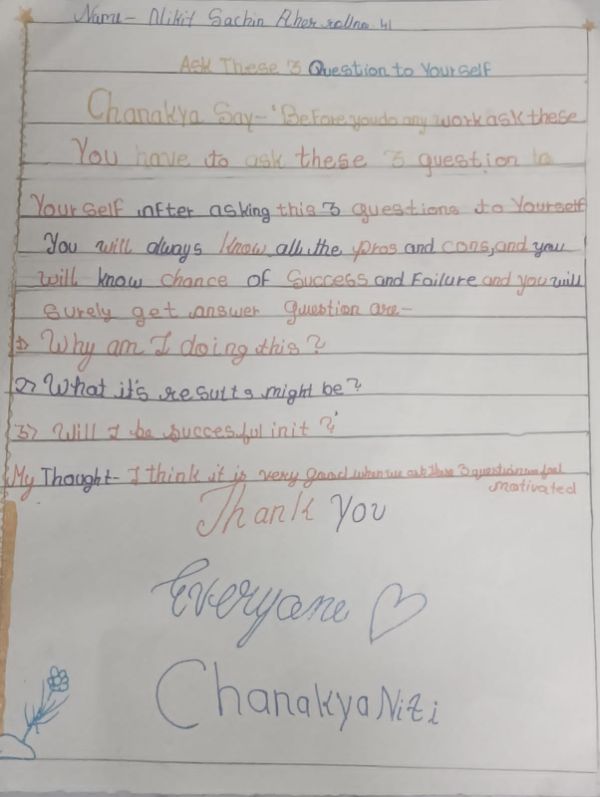 Name - Nikit Sachin Aher rollno 41
Ask These 3 Question to Yourself
Chanakya Say-'Before you do any work ask these
You have to ask these 3 question to
Yourself after asking this 3 questions to Yourself
You will always know all the pros and cons, and you
will know chance of Success and Failure and you will
surely get answer question are-
1) Why am I doing this?
2) What it's results might be?
3) Will I be succesful init?'
My Thought- I think it is very good when we ask these 3 question we feel
motivated
Thank You
Everyone
Chanakya Niti